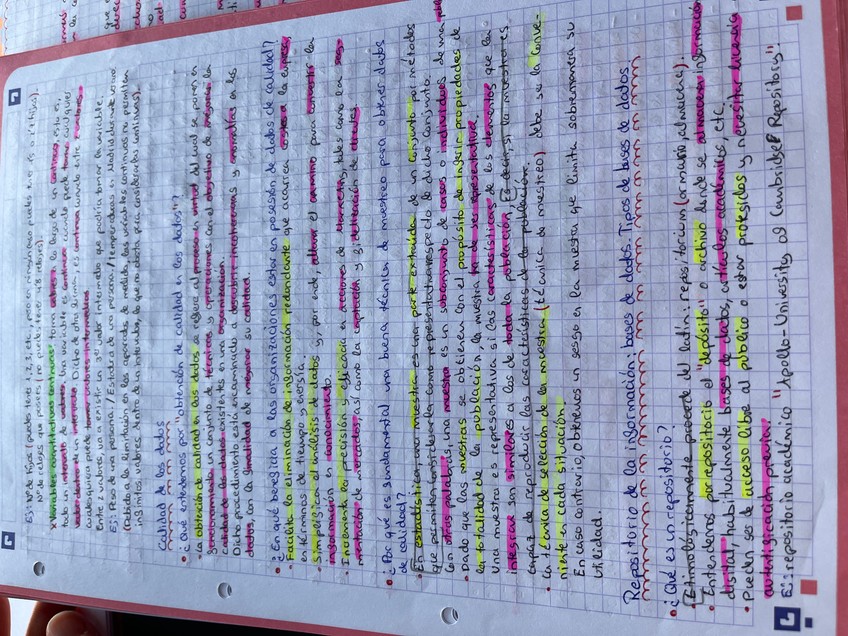 Ej: Nº de hijos (puedes tener 1, 2, 3, etc., pero en ningún caso puedes tener 1'5 o 1'6 hijos).
Nº de relojes que posees (no puedes tener 4'8 relojes).
*Variables cuantitativas continuas: toma valores a lo largo de un continuo, esto es, en
todo un intervalo de valores. Una variable es continua cuando puede tomar cualquier
valor dentro de un intervalo. Dicho de otra forma, es continua cuando entre 2 valores,
cualesquiera puede tomar valores intermedios.
Entre 2 valores, va a existir un tercer valor intermedio que podría tomar la variable.
Ej: Peso de una persona / Estatura de una persona / Temperaturas en Madrid durante verano
(Debido a la limitación en los aparatos de medida, las variables continuas no permiten
infinitos valores dentro de un intervalo, lo que no obsta para considerarlas continuas).
Calidad de los datos
• ¿Qué entendemos por "obtención de calidad en los datos"?
- La obtención de calidad en los datos se refiere al proceso en virtud del cual se ponen en
funcionamiento un conjunto de técnicas y operaciones con el objetivo de mejorar la
calidad de los datos existentes en una organización.
Dicho procedimiento está encaminado a descubrir incoherencias y anomalías en los
datos, con la finalidad de mejorar su calidad.
• ¿En qué beneficia a las organizaciones estar en posesión de datos de calidad?
- Facilita la eliminación de información redundante que acarrea costes a la empresa
en términos de tiempo y energía.
- Simplifica el análisis de datos y, por ende, allanar el camino para convertir la
información en conocimiento.
- Incrementa la precisión y eficacia en acciones de Marketing, tales como la seg-
mentación de mercados, así como la captación y fidelización de clientes.
• ¿Por qué es fundamental una buena técnica de muestreo para obtener datos
de calidad?
• En estadística, una muestra es una parte extraída de un conjunto por métodos
que permiten considerarla como representativa respecto de dicho conjunto.
Con otras palabras, una muestra es un subconjunto de casos o individuos de una pobl
• Dado que las muestras se obtienen con el propósito de inferir propiedades de
la totalidad de la población, la muestra ha de ser representativa.
Una muestra es representativa si las características de los elementos que la
integran son similares a los de toda la población. Es decir, si la muestra es
capaz de reproducir las características de la población.
• La técnica de selección de la muestra (técnica de muestreo) debe ser la conve-
niente en cada situación.
En caso contrario, obtenemos un sesgo en la muestra que limita sobremanera su
utilidad.
Repositorio de la información: bases de datos. Tipos de bases de datos
• ¿Qué es un repositorio?
• Etimológicamente procede del latín: repositorium (armario, alhacena).
• Entendemos por repositorio el "depósito" o archivo donde se almacena información
digital, habitualmente bases de datos, artículos académicos, etc.
• Pueden ser de acceso libre al público o estar protegidos y necesitar licencia
autentificación previa.
Ej: repositorio académico "Apollo - University of Cambridge Repository".